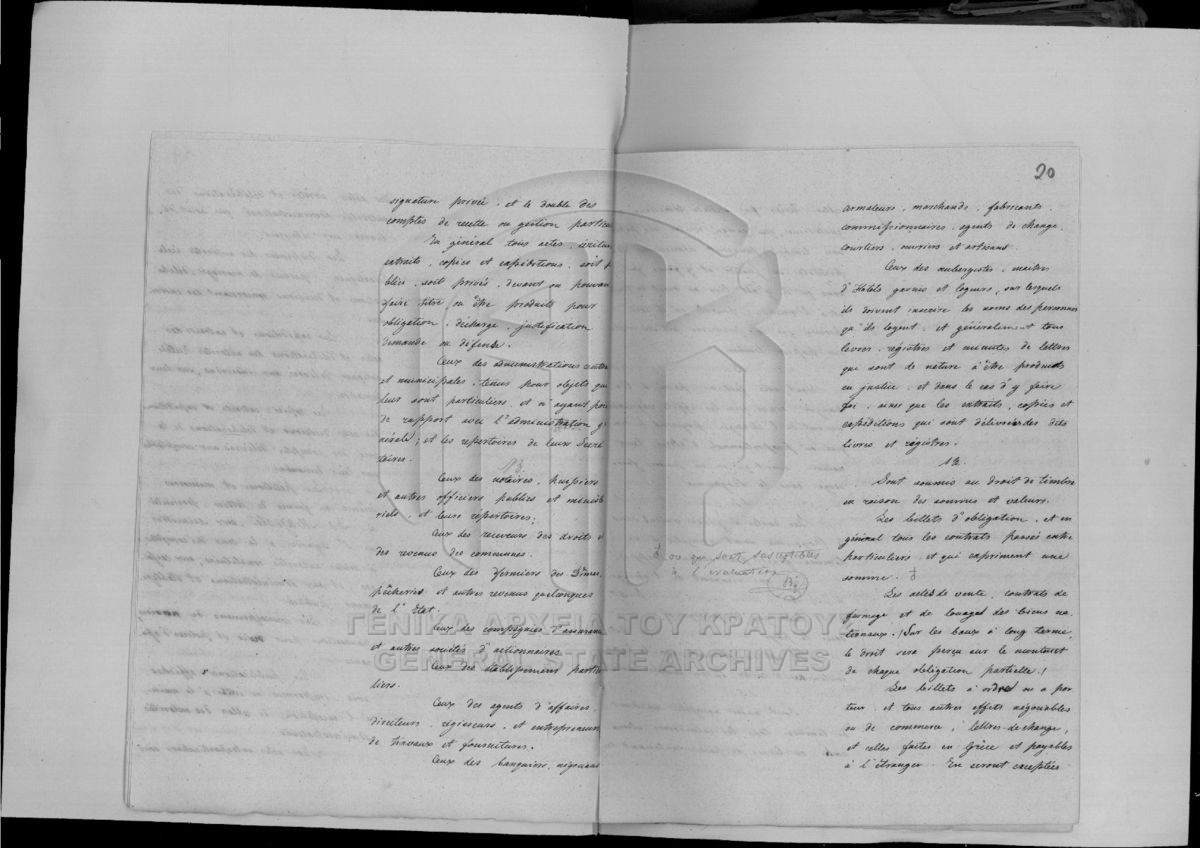 signature privée, et le double des
comptes de recette ou gestion particu
En général tous actes, écritures
extraits, copies et expéditions, soit p
blics, soit privés, devant ou pouvan
faire titre ou être produits pour
obligation, décharge, justification
demande ou défense.
Ceux des administrations centra
et municipales, tenus pour objets qui
leur sont particuliers, et n'ayant pas
de rapport avec l'administration g
nérale; et les repertoires de leurs Secré
taires.
13.
Ceux des notaires, huissiers
et autres officiers publics et ministé
riels, et leurs répertoires;
Ceux des receveurs des droits et
des revenus des communes.
Ceux des fermiers des Dîmes
pêcheries et autres revenus quelconques
de l'Etat.
Ceux des compagnies d'assuran
et autres sociétés d'actionnaires
Ceux des établissemens particu
liers.
Ceux des agents d'affaires,
directeurs, régisseurs, et entrepreneurs
de travaux et fournitures.
Ceux des banquiers, négocians
20
armateurs, marchands, fabricants,
commissionnaires, agents de change,
courtiers, ouvriers et artisans.
Ceux des aubergistes, maîtres
d'Hotels garnis et logeurs, sur lesquels
ils doivent inscrire les noms des personnes
qu'ils logent, et généralement tous
livres, régistres et minutes de lettres
qui sont de nature à être produits
en justice, et dans le cas d'y faire
foi, ainsi que les extraits, copies et
expéditions qui sont délivrés des dits
livres et régistres.
12.
Sont soumis au droit de timbre
en raison des sommes et valeurs.
Les billets d'obligation, et en
général tous les contrats passés entre
particuliers, et qui expriment une
somme.
ou qui sont susceptibles
d'évaluation
Les actes de vente, contrats de
fermage et de louage des biens na
tionaux. (Sur les baux à long terme,
le droit sera perçu sur le montant
de chaque obligation partielle.)
Les billets à ordre ou a por
teur, et tous autres effets négociables
ou de commerce, lettres-de-change,
et celles faites en Grèce et payables
à l'étranger. En seront exceptées
ΓΕΝΙΚΑ ΑΡΧΕΙΑ ΤΟΥ ΚΡΑΤΟΥΣ
GENERAL STATE ARCHIVES